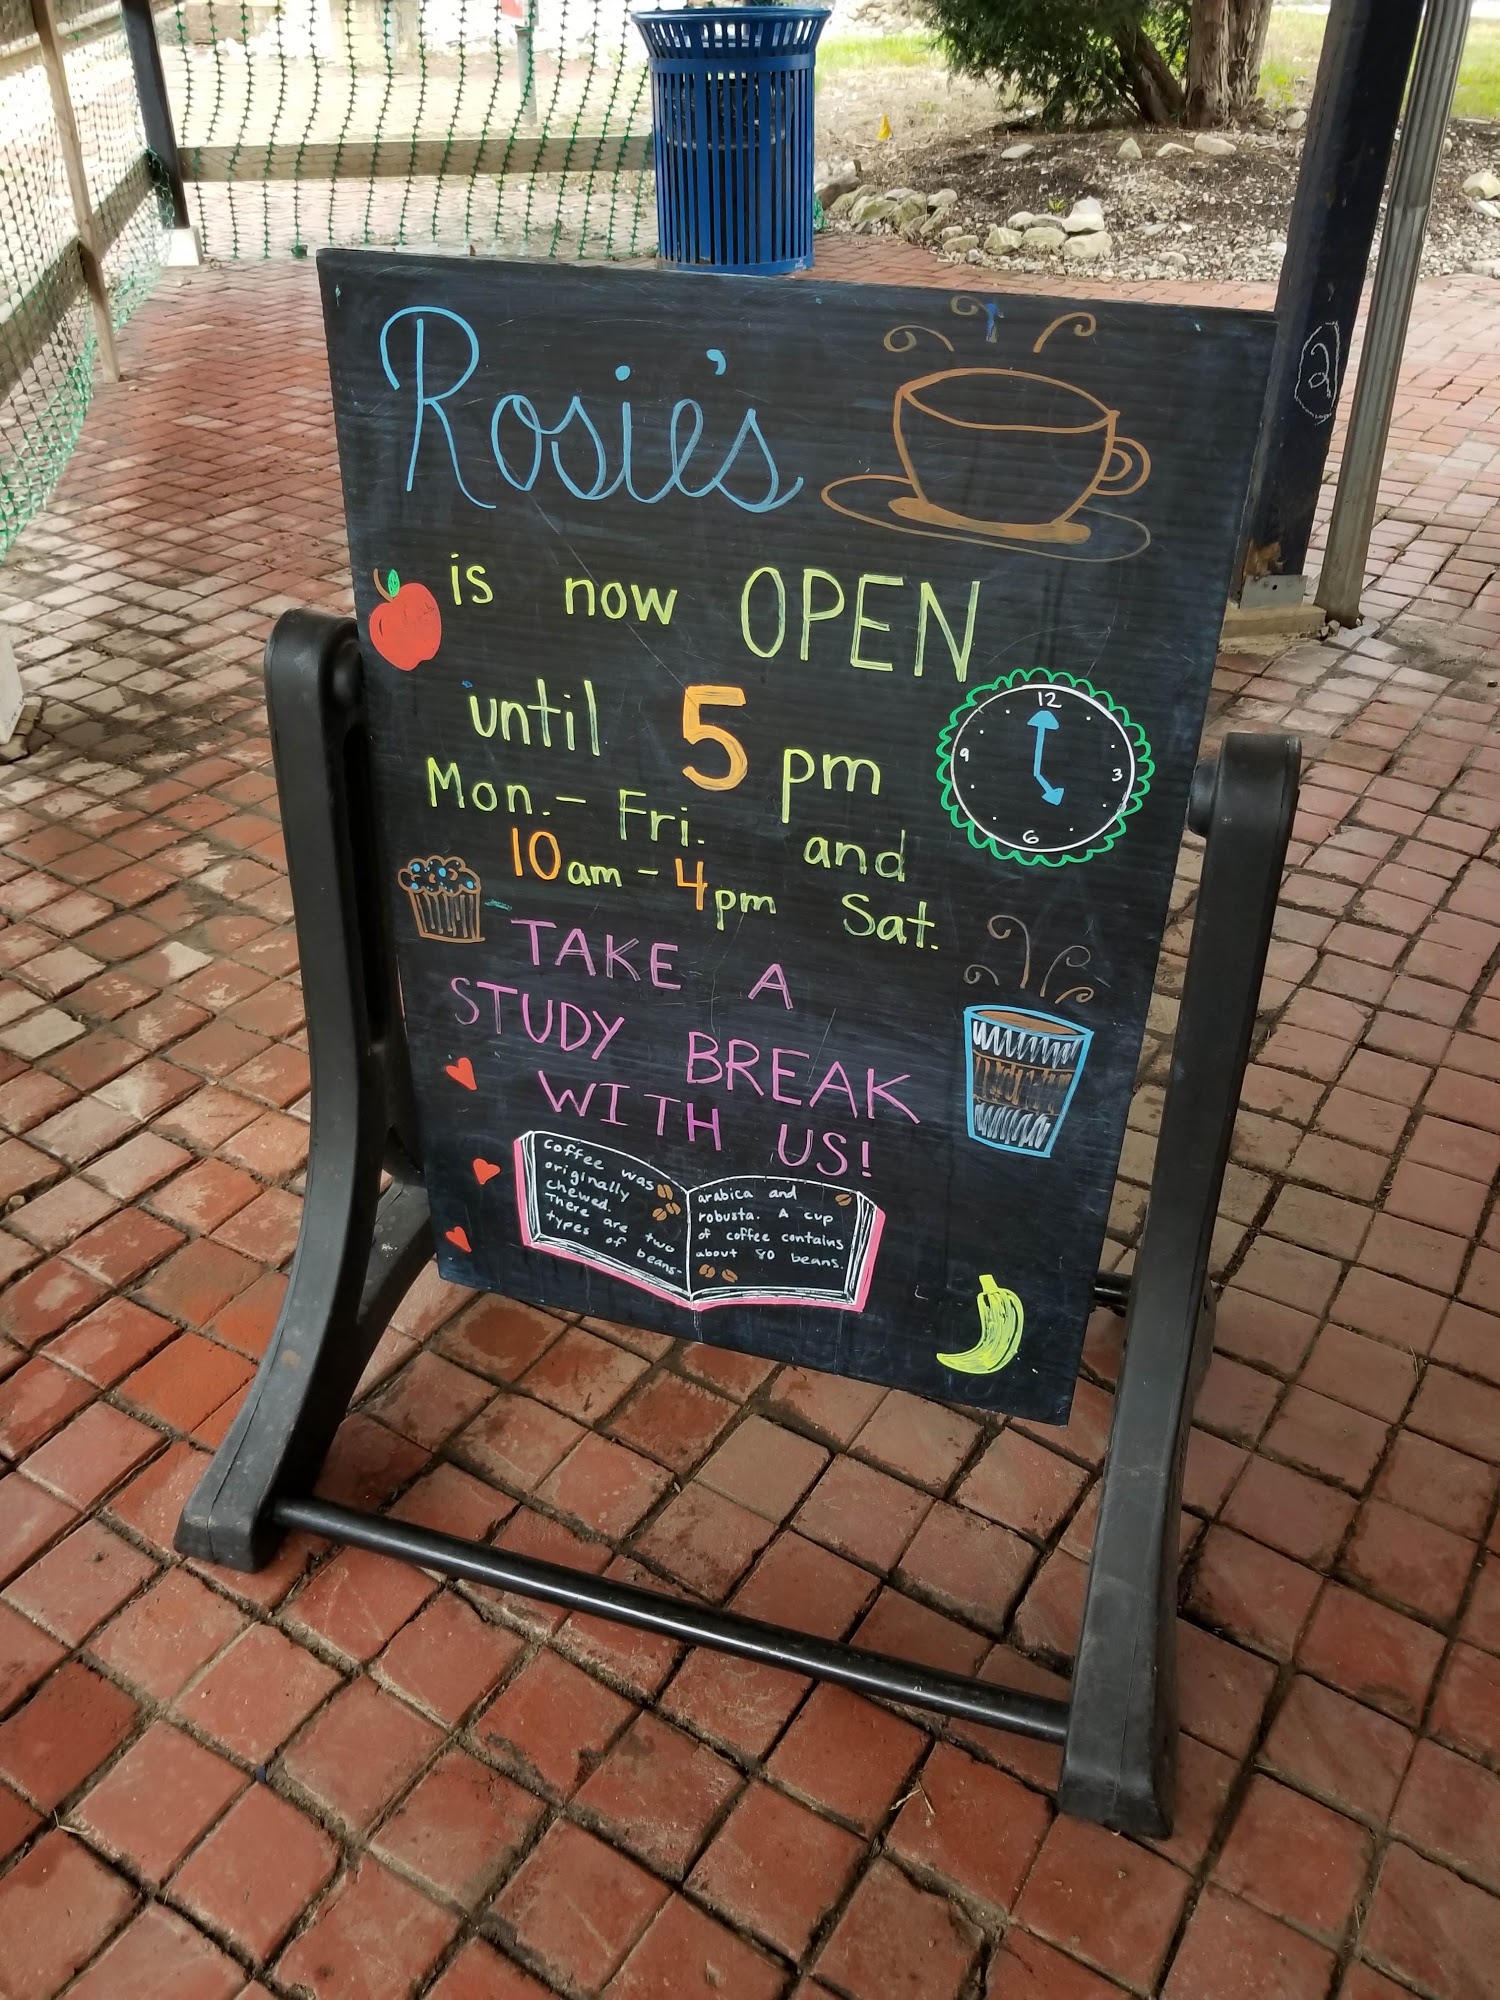 Rosie's
is now OPEN
until 5 pm
Mon.- Fri. and
10am - 4pm Sat.
TAKE A
STUDY BREAK
WITH US!
12
3
6
9
Coffee was
originally
chewed.
There are two
types of beans-
arabica and
robusta. A cup
of coffee contains
about 80 beans.
2